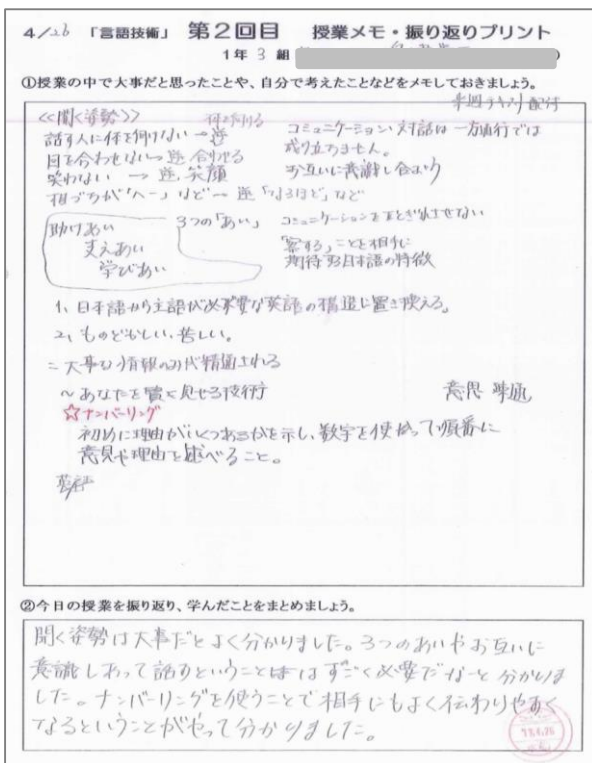 4/26 「言語技術」 第2回目 授業メモ・振り返りプリント
1年 3 組
①授業の中で大事だと思ったことや、自分で考えたことなどをメモしておきましょう。
来週テキスト配付
<<聞く姿勢>>
話す人に体を向けない→逆 体を向ける
目を合わせない→逆、合わせる
笑わない → 逆、笑顔
相づちが「へー」など→ 逆「なるほど」など
コミュニケーション、対話は一方通行では
成り立ちません。
お互いに意識し合おう
助けあい
支えあい
学びあい
3つの「あい」
コミュニケーションをとぎれさせない
「察する」ことを相手に
期待する日本語の特徴
1、日本語から主語が必ず必要な英語の構造に置き換える。
2、ものどもしい、苦しい。
= 大事な情報のみ
~あなたを賢く見せる技術
意思 疎通
☆ナンバーリング
初めに理由がいくつあるかを示し、数字を使って順番に
意見や理由を述べること。
英語
②今日の授業を振り返り、学んだことをまとめましょう。
聞く姿勢は大事だとよく分かりました。3つのあいやお互いに
意識しあって話すということはすごく必要だなーと分かりま
した。ナンバーリングを使うことで相手にもよく伝わりやすく
なるということがやって分かりました。